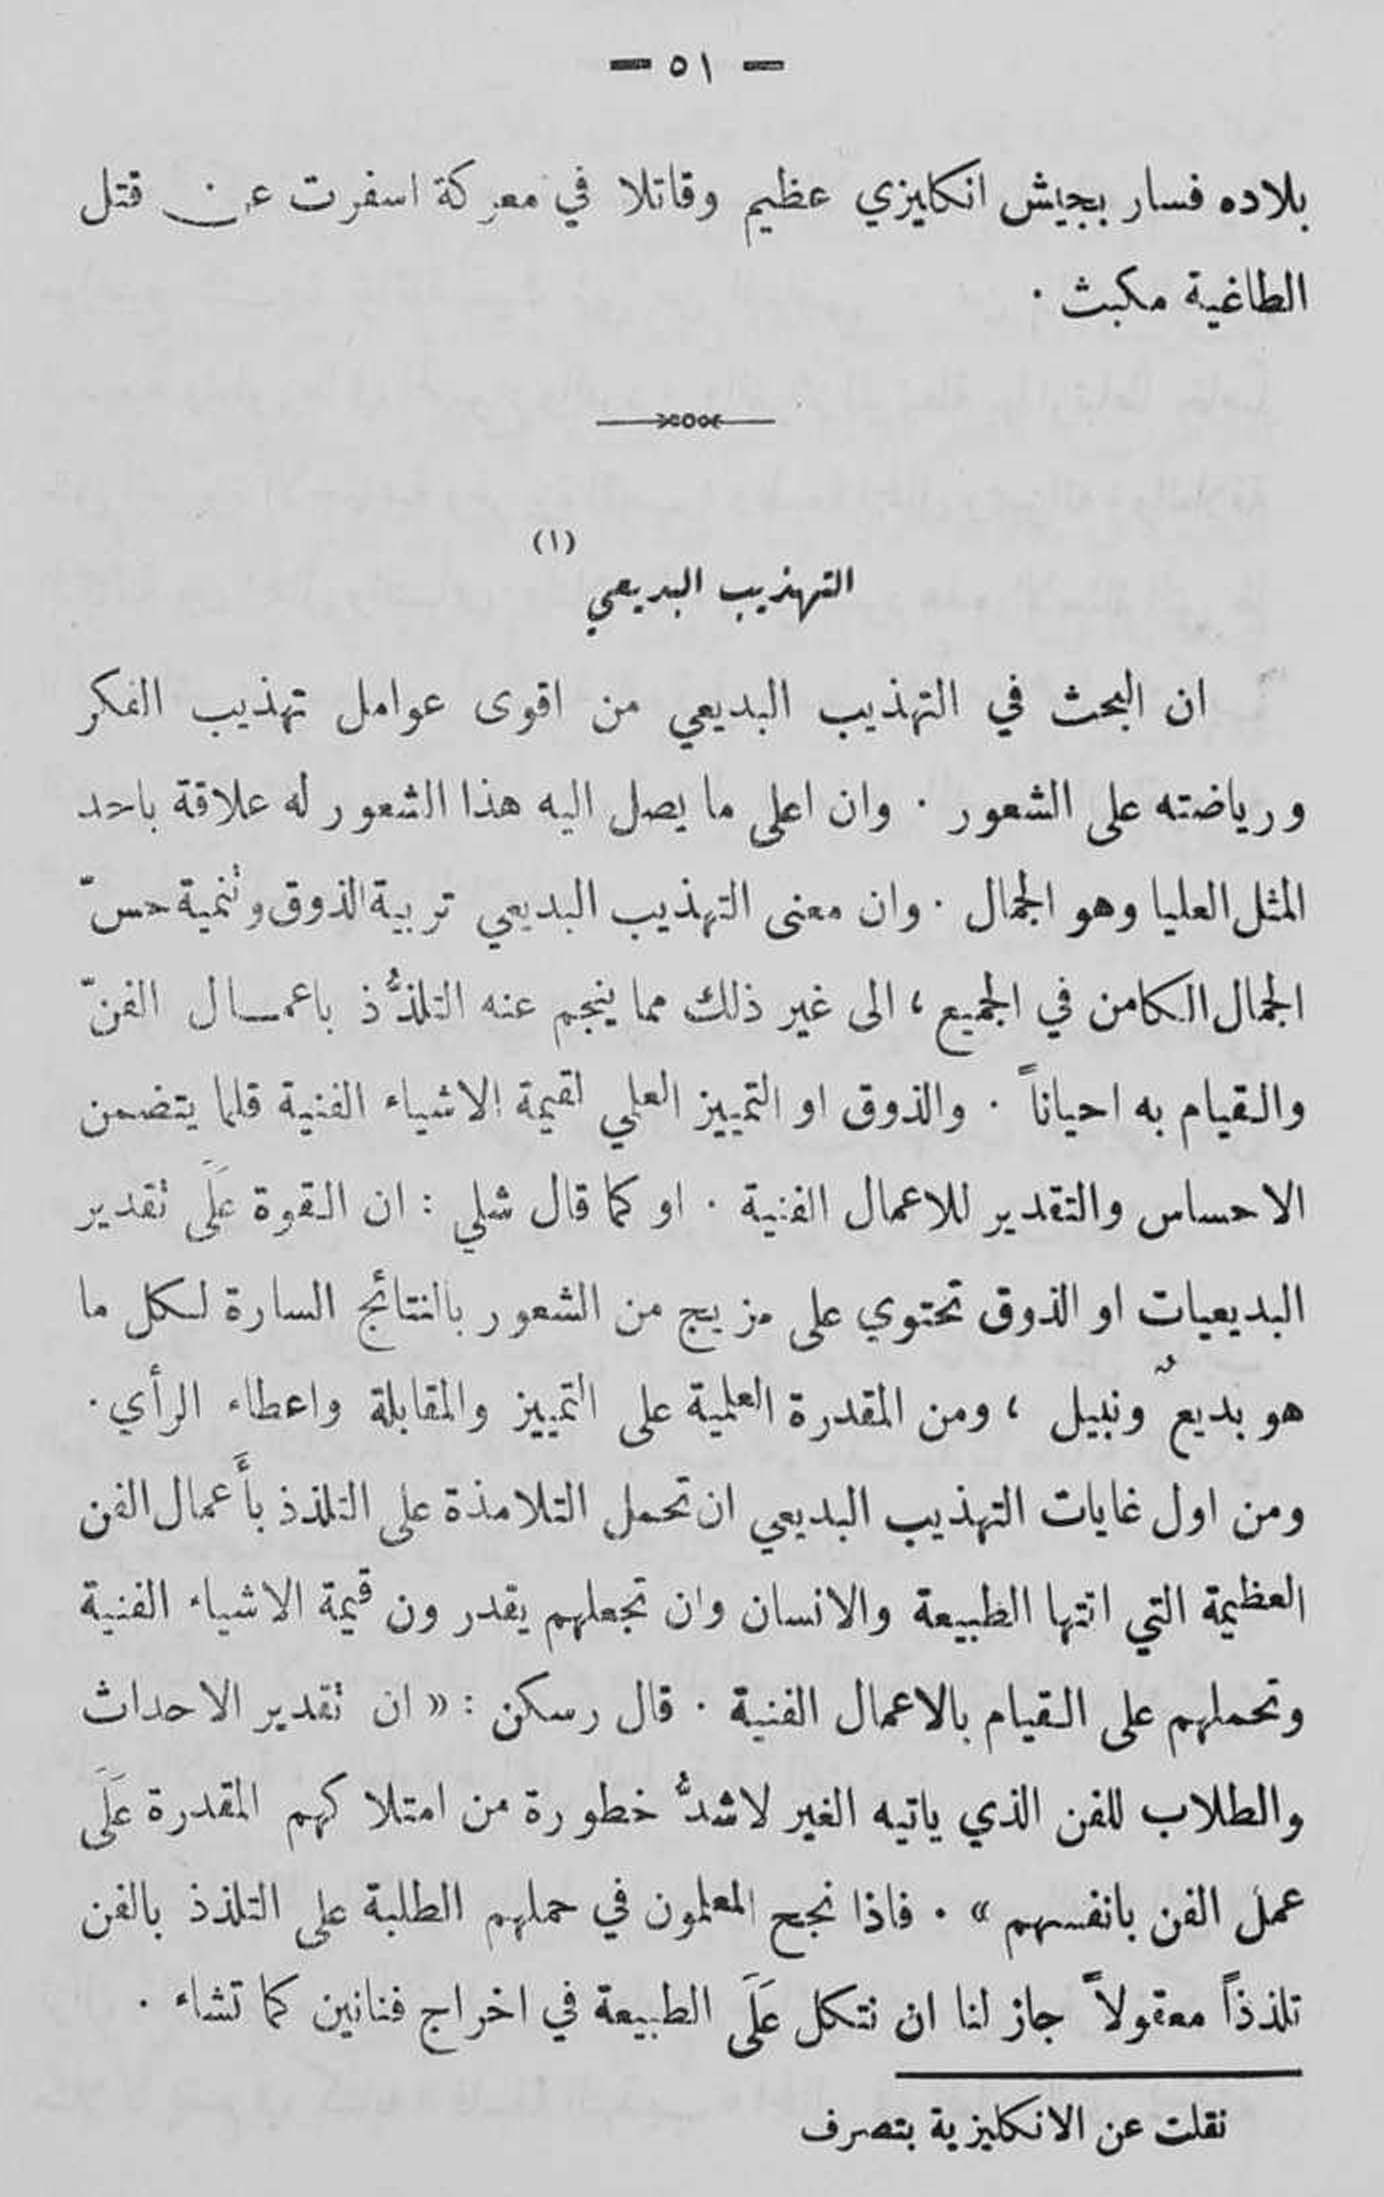 — ٥١ —
بلاده فسار بجيش انكليزي عظيم وقاتلا في معركة اسفرت عن قتل
الطاغية مكبث ٠
(١)
التهذيب البديعي
ان البحث في التهذيب البديعي من اقوى عوامل تهذيب الفكر
ورياضته على الشعور ٠ وان اعلى ما يصل اليه هذا الشعور له علاقة باحد
المثل العليا وهو الجمال ٠ وان معنى التهذيب البديعي تربية الذوق وتنمية حسّ
الجمال الكامن في الجميع ، الى غير ذلك مما ينجم عنه التلذُّذ باعمـال الفنّ
والقيام به احياناً ٠ والذوق او التمييز العلمي لقيمة الاشياء الفنية قلما يتضمن
الاحساس والتقدير للاعمال الفنية ٠ او كما قال شلي : ان القوة عَلَى تقدير
البديعيات او الذوق تحتوي على مزيج من الشعور بالنتائج السارة لكل ما
هو بديعٌ ونبيل ، ومن المقدرة العلمية على التمييز والمقابلة واعطاء الرأي ٠
ومن اول غايات التهذيب البديعي ان تحمل التلامذة على التلذذ بأَعمال الفن
العظيمة التي اتتها الطبيعة والانسان وان تجعلهم يقدرون قيمة الاشياء الفنية
وتحملهم على القيام بالاعمال الفنية ٠ قال رسكن : « ان تقدير الاحداث
والطلاب للفن الذي ياتيه الغير لاشدُّ خطورة من امتلاكهم المقدرة عَلَى
عمل الفن بانفسهم » ٠ فاذا نجح المعلمون في حملهم الطلبة على التلذذ بالفن
تلذذاً معقولاً جاز لنا ان نتكل عَلَى الطبيعة في اخراج فنانين كما تشاء ٠
نقلت عن الانكليزية بتصرف